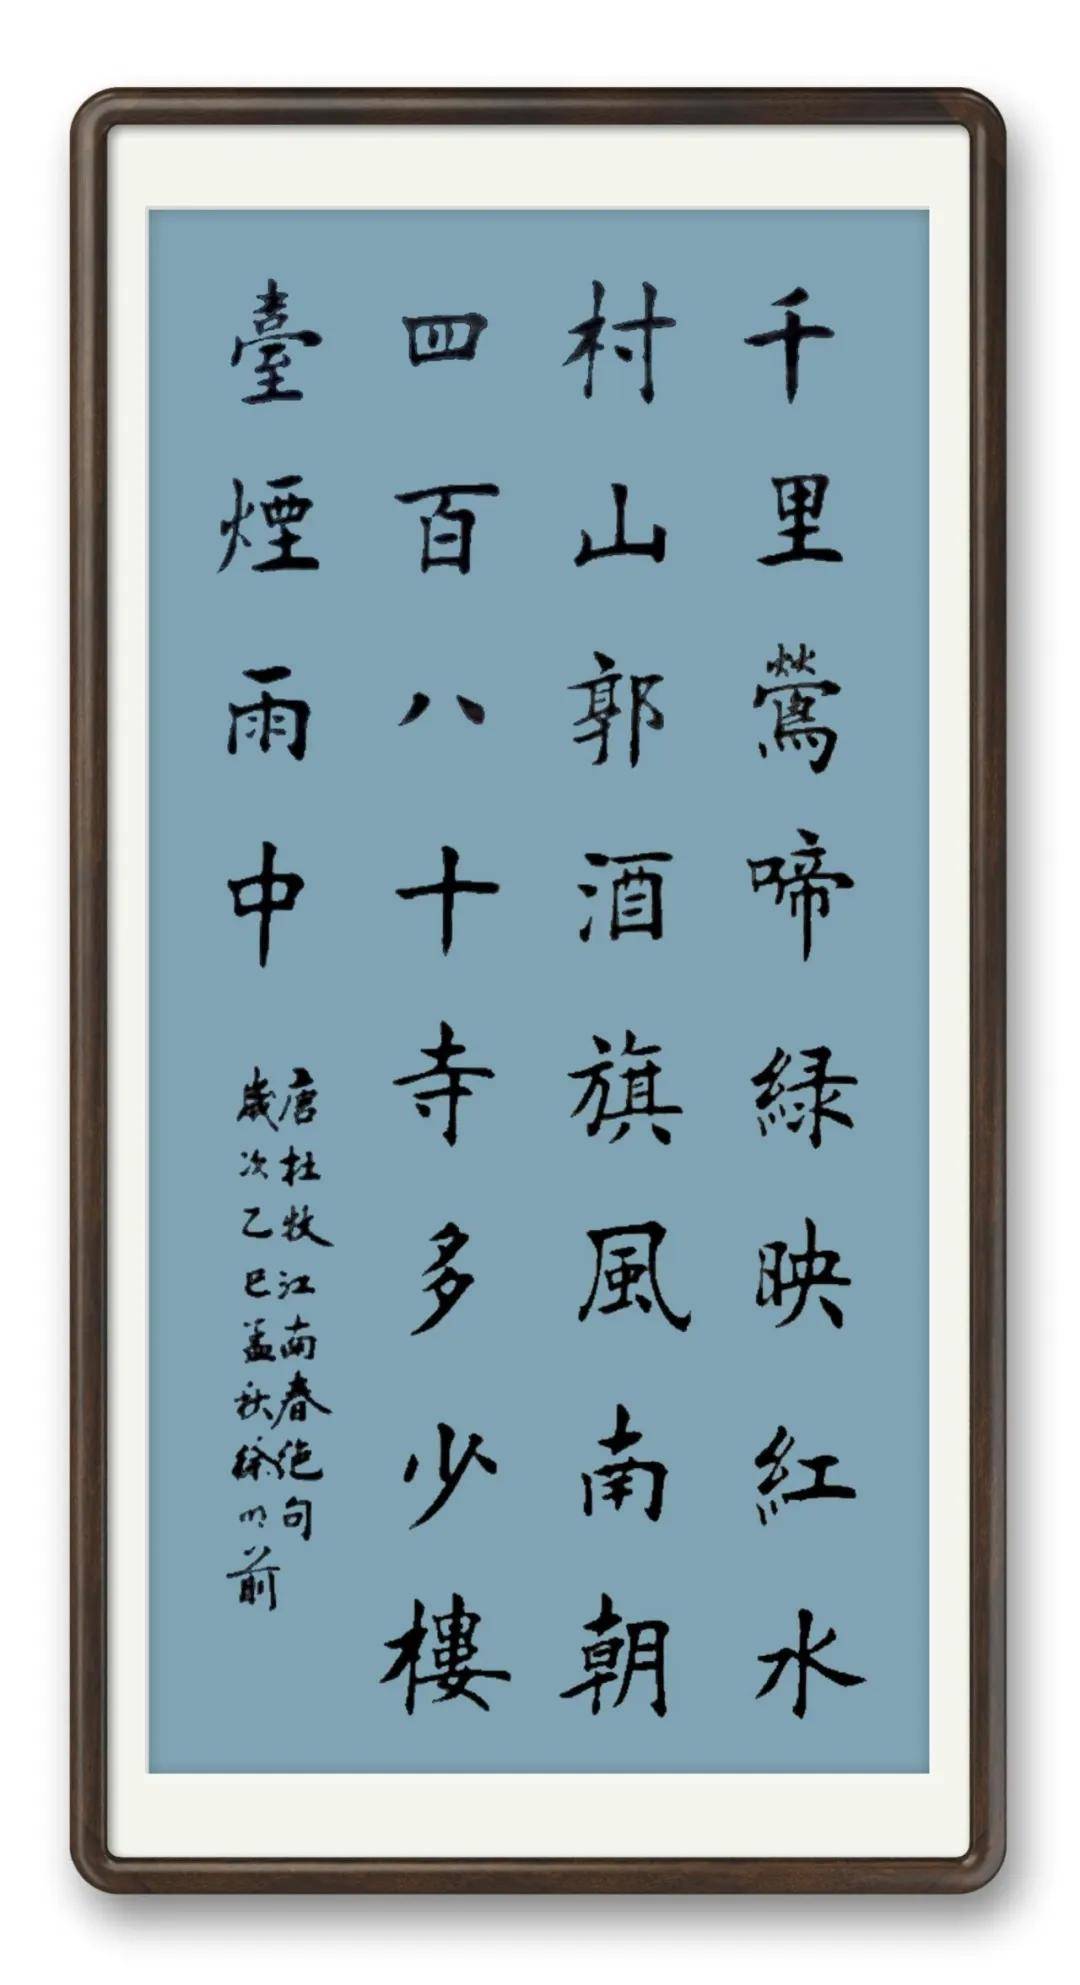 千里鶯啼緑映紅水
村山郭酒旗風南朝
四百八十寺多少樓
臺煙雨中
唐杜牧江南春絶句
歲次乙巳孟秋徐前